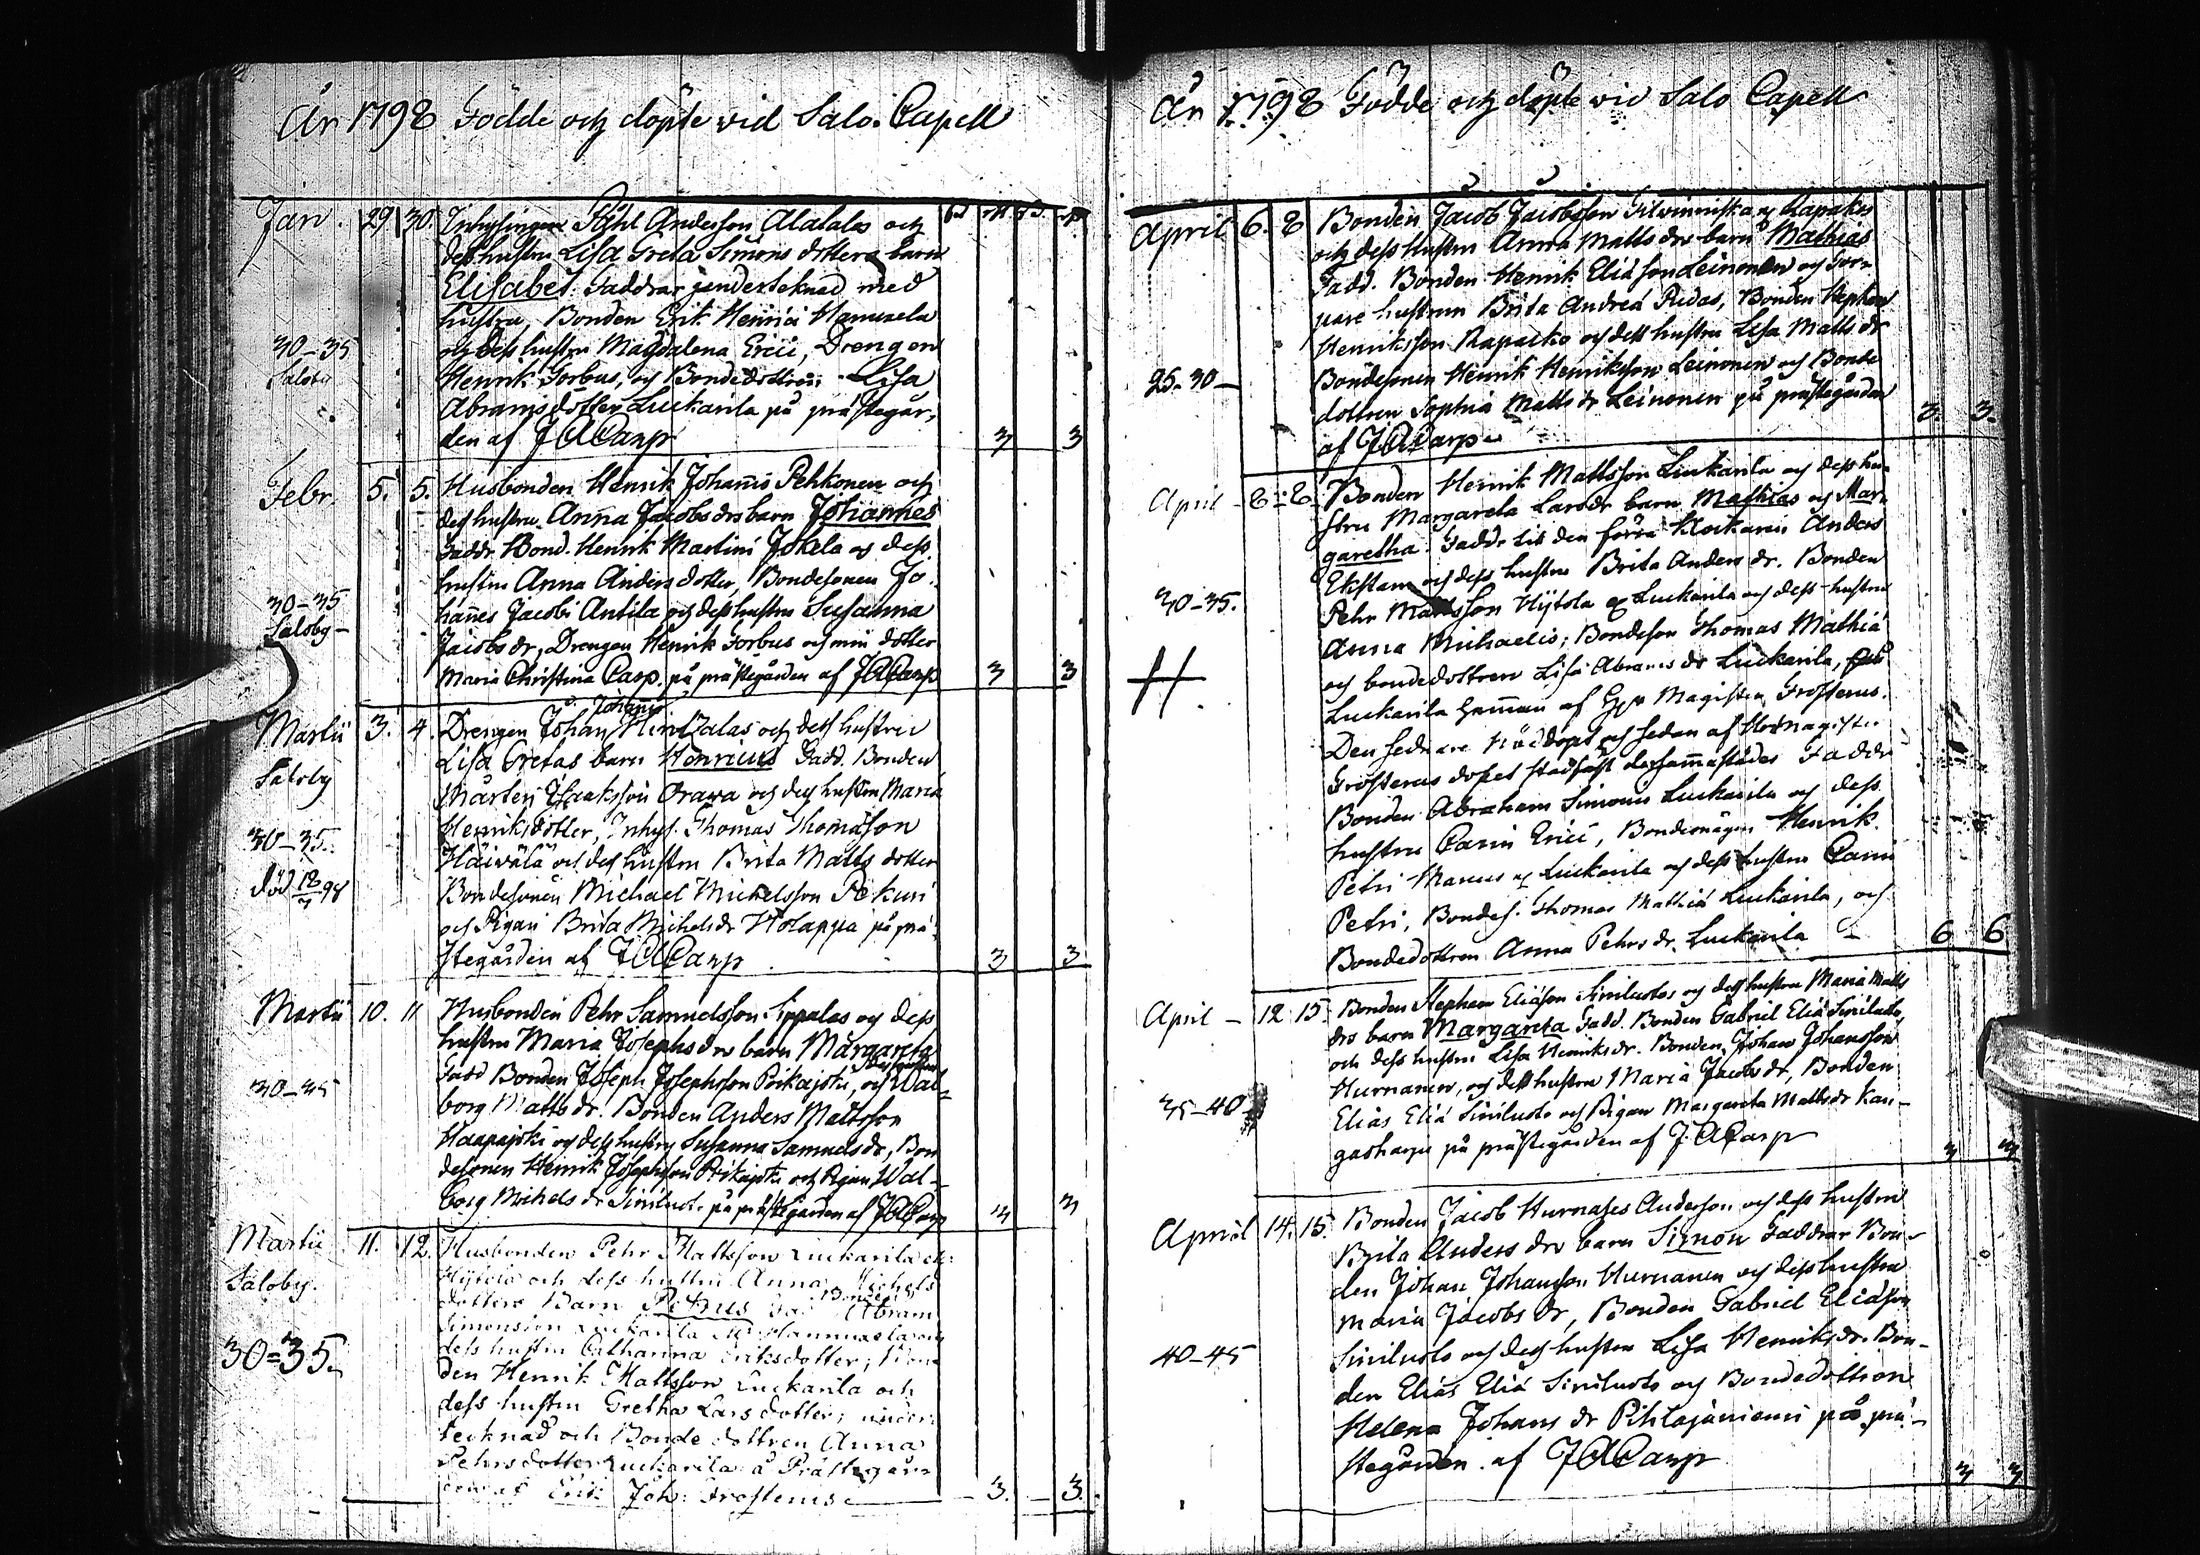 År 1798 Födde och döpte vid Salo Capell
Jan. 29 30. Inhysingen Påhl Andersson Alatalos och
dess hustru Lisa Greta Simons dotters barn
Elisabet. Faddrar underteknad med
hustru, Bonden Erik Henrici Hanusela
och dess hustru Magdalena Erici, Drengen
30-35 Henrik Forbus, och Bondedottren Lisa
Saloby
Abramsdotter Luckarila på prästegår-
den af J A Carp 3 3
Febr. 5. 5. Husbonden Henrik Johannis Pehkonen och
dess hustru Anna Jacobs drs barn Johannes
Faddr Bond. Henrik Martini Jokela og dess
hustru Anna Anders dotter, Bondesonen Jo-
30-35 hannes Jacobi Antila och dess hustru Susanna
Saloby
Jacobs dr, Drengen Henrik Forbus och min dotter
Maria Christina Carp. på prästegården af J A Carp 3 3
Johannis
Martii 3. 4. Drengen Johan och dess hustru
Lisa Gretas barn Henricus Fadd. Bonden
Saloby Mårten Isaksson Orawa och dess hustru Maria
Henriksdotter, Inhys. Thomas Thomason
30-35. Häiwälä och dess hustru Brita Matts dotter
död 18 98 Bondesonen Michael Mickelsson Pekuri
och Pigan Brita Michelsdr Holappa på prä-
stegården af J A Carp 3 3
Martii 10. 11 Husbonden Pehr Samuelsson Sippalas og dess
hustru Maria Josephs drs barn Margareta
Fadd Bonden Joseph Josephsson Poikajoki, och Wal-
30-35
borg Matts dr. Bonden Anders Mattsson
Haapajoki og dess hustru Susanna Samuels dr, Bon
desonen Henrik Josephsson Poikajoki och Pigan Wal-
borg Michels dr Siniluoto på prästegården af J A Carp 3 3
Martii 11. 12. Husbonden Pehr Mattsson Luckarila
Saloby. Hÿtola och dess hustru Anna Michels
dotters Barn Petrus Bonde Abram
Simonsson Luckarila Hannuxela och
30=35. dess hustru Catharina Eriksdotter; Bon-
den Henrik Mattsson Luckarila och
dess hustru Gretha Lars dotter; under-
tecknad och Bonde dottren Anna
Pehrsdotter Luckarila å Prästegår-
den af Erik Joh: Frosterus 3. 3.
År 1798 Födde och döpte vid Salo Capell
April 6. 8 Bonden Jacob Jacobsson Kapakos
och dess hustru Anna Matts drs barn Mathias
Fadd. Bonden Henrik Eliæson Leinonen og Tor-
pare hustrun Brita Andreæ Pudas, Bonden Stephan
Henriksson Rapacko och dess hustru Lisa Matts dr
25-30 Bondesonen Henrik Henriksson Leinonen och Bonde
dottren Sophia Matts dr Leinonen på prästegården
af J A Carp 3. 3.
April 8 8. Bonden Henrik Mattsson Luckarila och dess hu-
stru Margareta Larsdr barn Mathias og Mar-
garetha. Faddr til den förra Klockaren Anders
Ekstam och dess hustru Brita Anders dr. Bonden
30-35. Pehr Mattsson Hÿtola og Luckarila och dess hustru
Anna Michaelis; Bondeson Thomas Mathiæ
och bondedottren Lisa Abrams dr Luckarila,
Luckarila hemman af Magister Frosterus.
Den sednare nöddöpt och sedan af Magister
Frosterus döpet stadfäst dersammastädes Faddr
Bonden Abraham Simonis Luckarila och dess
hustru Carin Erici, Bondemågen Henrik
Petri Marcus og Luckarila och dess hustru Carin
Petri, Bondes. Thomas Mathiæ Luckarila, och
Bondedottren Anna Pehrs dr. Luckarila 6 6
April 12 15. Bonden Stephan Eliæson Siniluotos og dess hustru Maria Matts
drs barn Margareta Fadd. Bonden Gabriel Eliæ Siniluoto,
och dess hustru Lisa Henriksdr. Bonden Johan Johansson
Hurnanen, och dess hustru Maria Jacobs dr, Bonden
35-40 Elias Eliæ Siniluoto och Pigan Margareta Mattsdr Kan-
gasharju på prästegården af J. A Carp 3 3
April 14. 15. Bonden Jacob Hurnases Anderson och dess hustru
Brita Anders drs barn Simon Faddrar Bon-
den Johan Johansson Hurnanen og dess hustru
Maria Jacobs dr, Bonden Gabriel Eliæson
40-45 Siniluoto och dess hustru Lisa Henriksdr. Bon-
den Elias Eliæ Siniluoto og Bondedottren
Helena Johans dr Pihlajaniemi på prä-
stegården af J A Carp 3 3